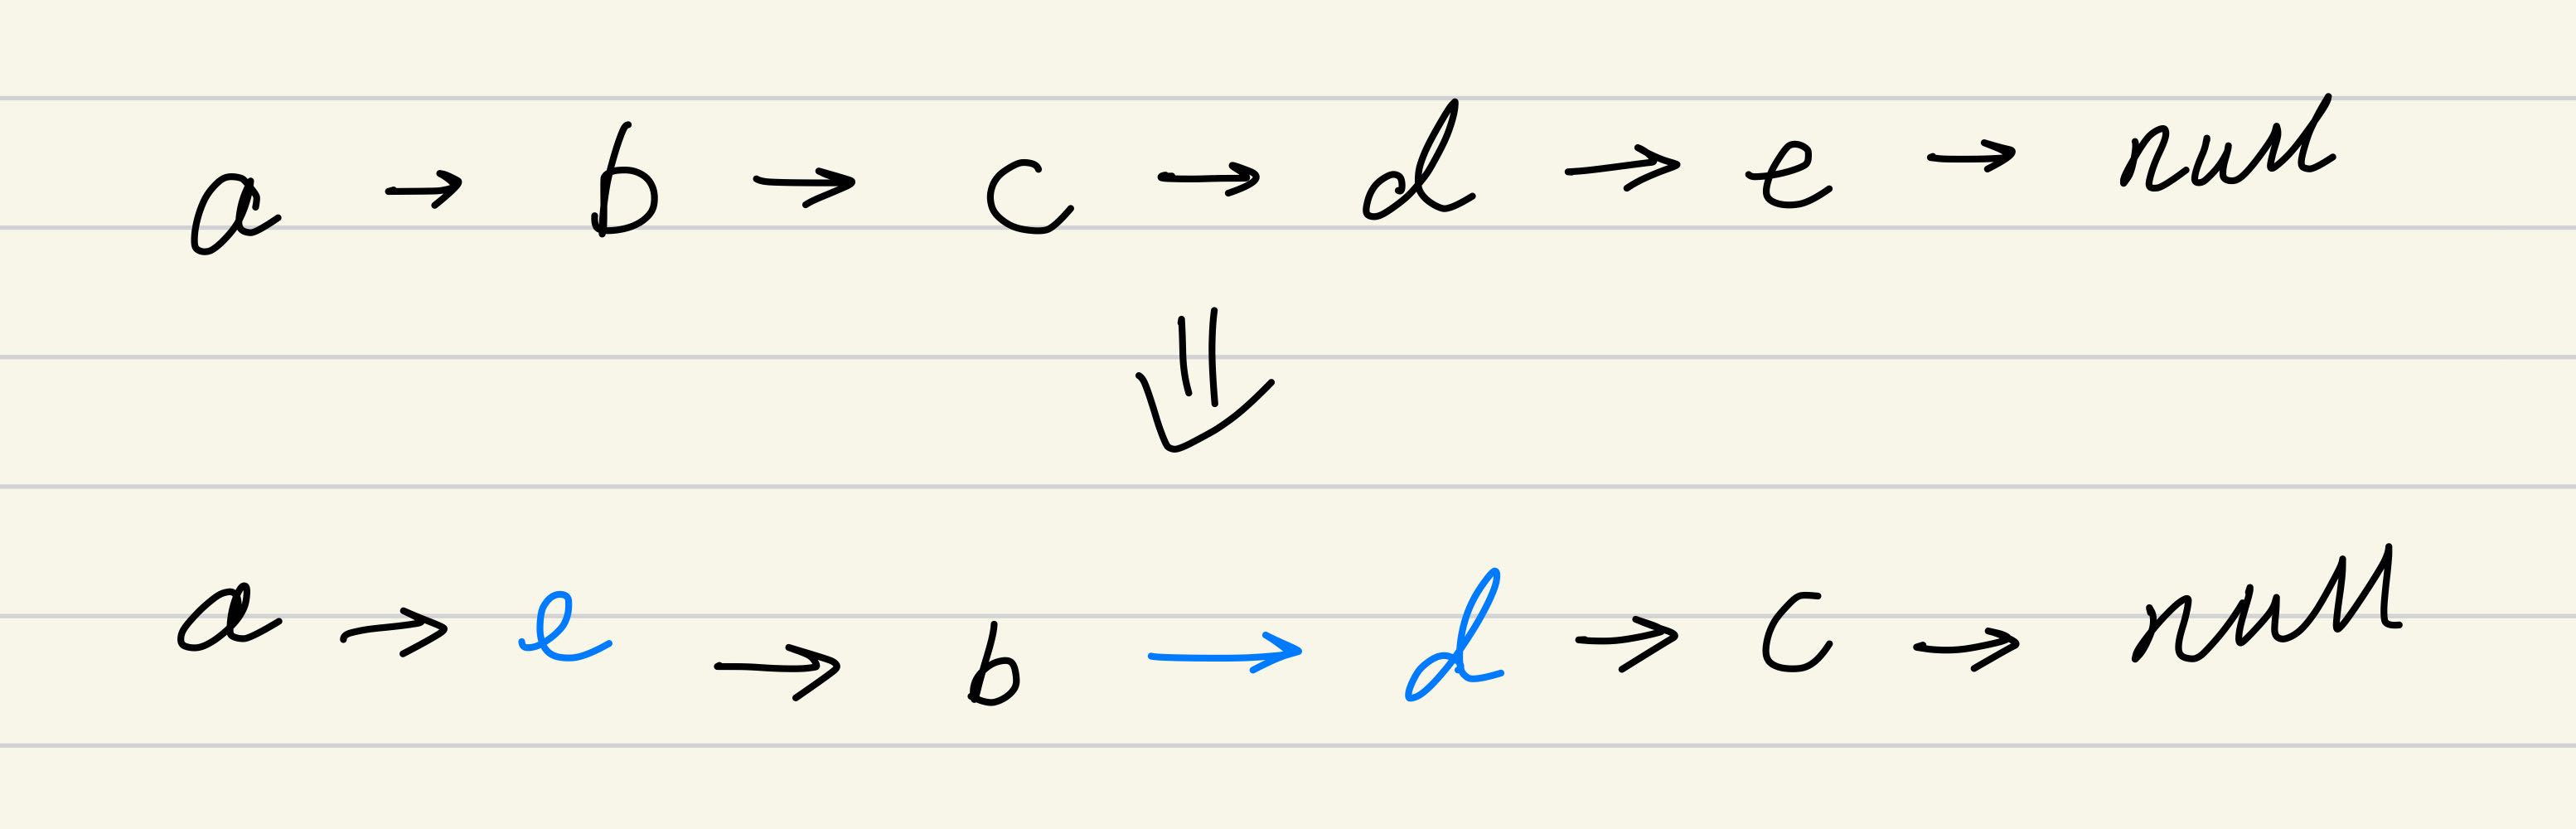 a → b → c → d → e → null
⇓
a → e → b → d → c → null